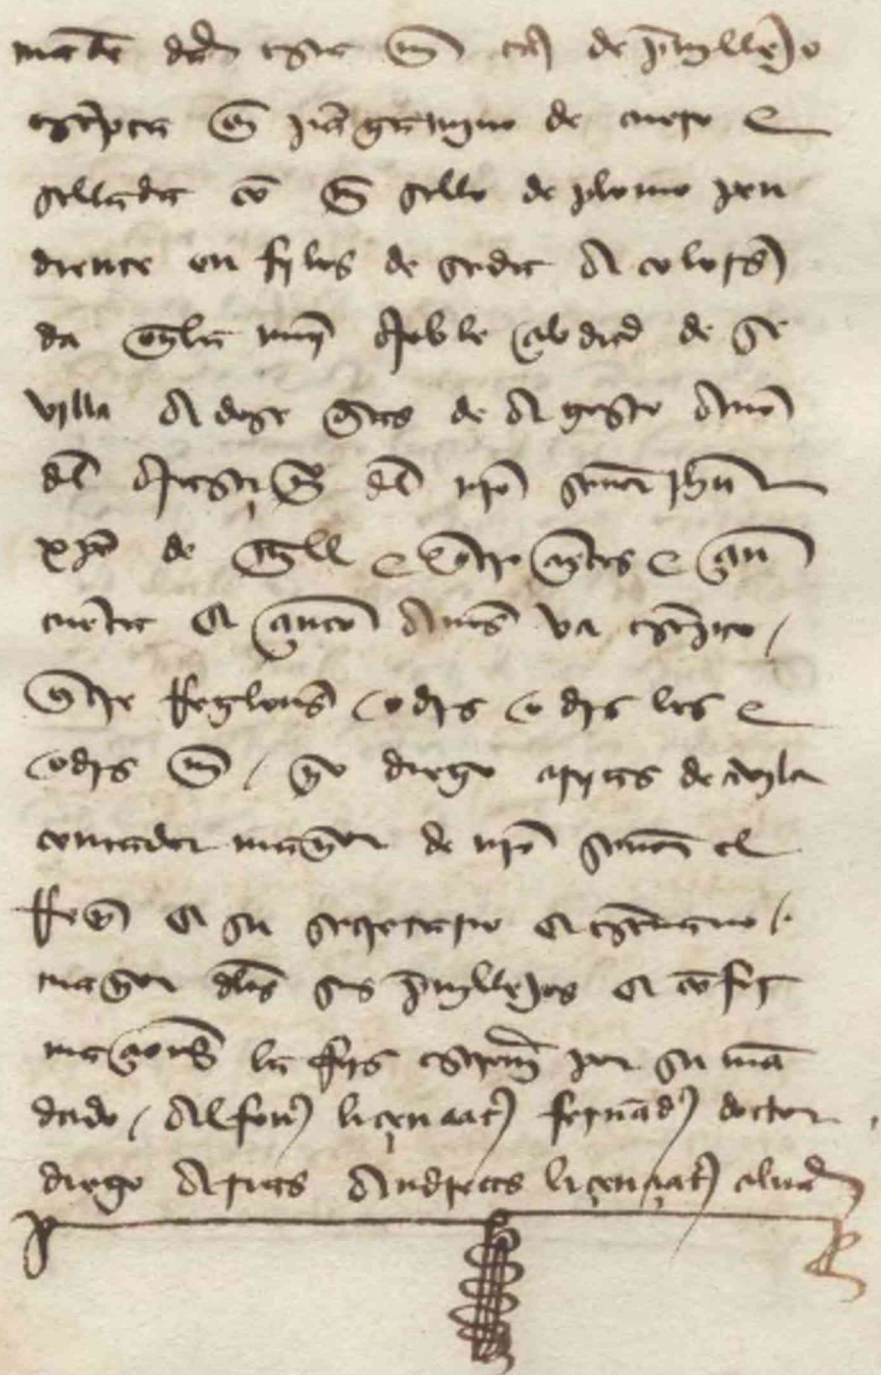 mandé dar esta mi carta de preuillejo
escripta en pargamino de cuero e
sellada con mi sello de plomo pen
diente en fylos de seda a colores
da en la muy noble çibdad de se
villa a dose dias de agosto año
del nasçimiento del nro señor jhu
xpo de mill e quatroçientos e çin
cuenta e çinco años va escripto
entre rreglones o diz o diz los e
o diz mi / yo diego arias de auila
contador mayor de nro señor el
rrey e su secretario e escriuano
mayor de los sus preuillejos e confir
maçiones la fis escreuir por su man
dado / alfon liçençiat fernand doctor
diego arias andreas liçençiat aluar